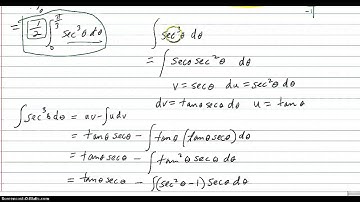 = 1/2 ∫₀^{π/3} sec³θ dθ
∫ sec³θ dθ
= ∫ secθ sec²θ dθ
v = secθ du = sec²θ dθ
dv = tanθ secθ dθ u = tanθ
∫ sec³θ dθ = uv - ∫ u dv
= tanθ secθ - ∫ tanθ (tanθ secθ) dθ
= tanθ secθ - ∫ tan²θ secθ dθ
= tanθ secθ - ∫ (sec²θ - 1) secθ dθ